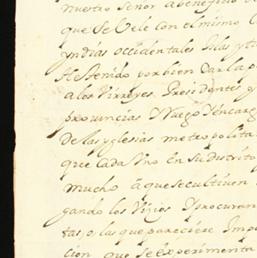 nuestro señor a beneficio de
que se Vele con el mismo
yndias occidentales Yslas y ti
He tenido por bien dar la p
a los Virreyes, Presidentes y
prouincias y Ruego y encarg
de las yglesias metropolita
que Cada Vno en su distrito
mucho a que se cultiuen
gando los Viçios y procuran
tas, o las que pareciere Impo
cion que se experimenta